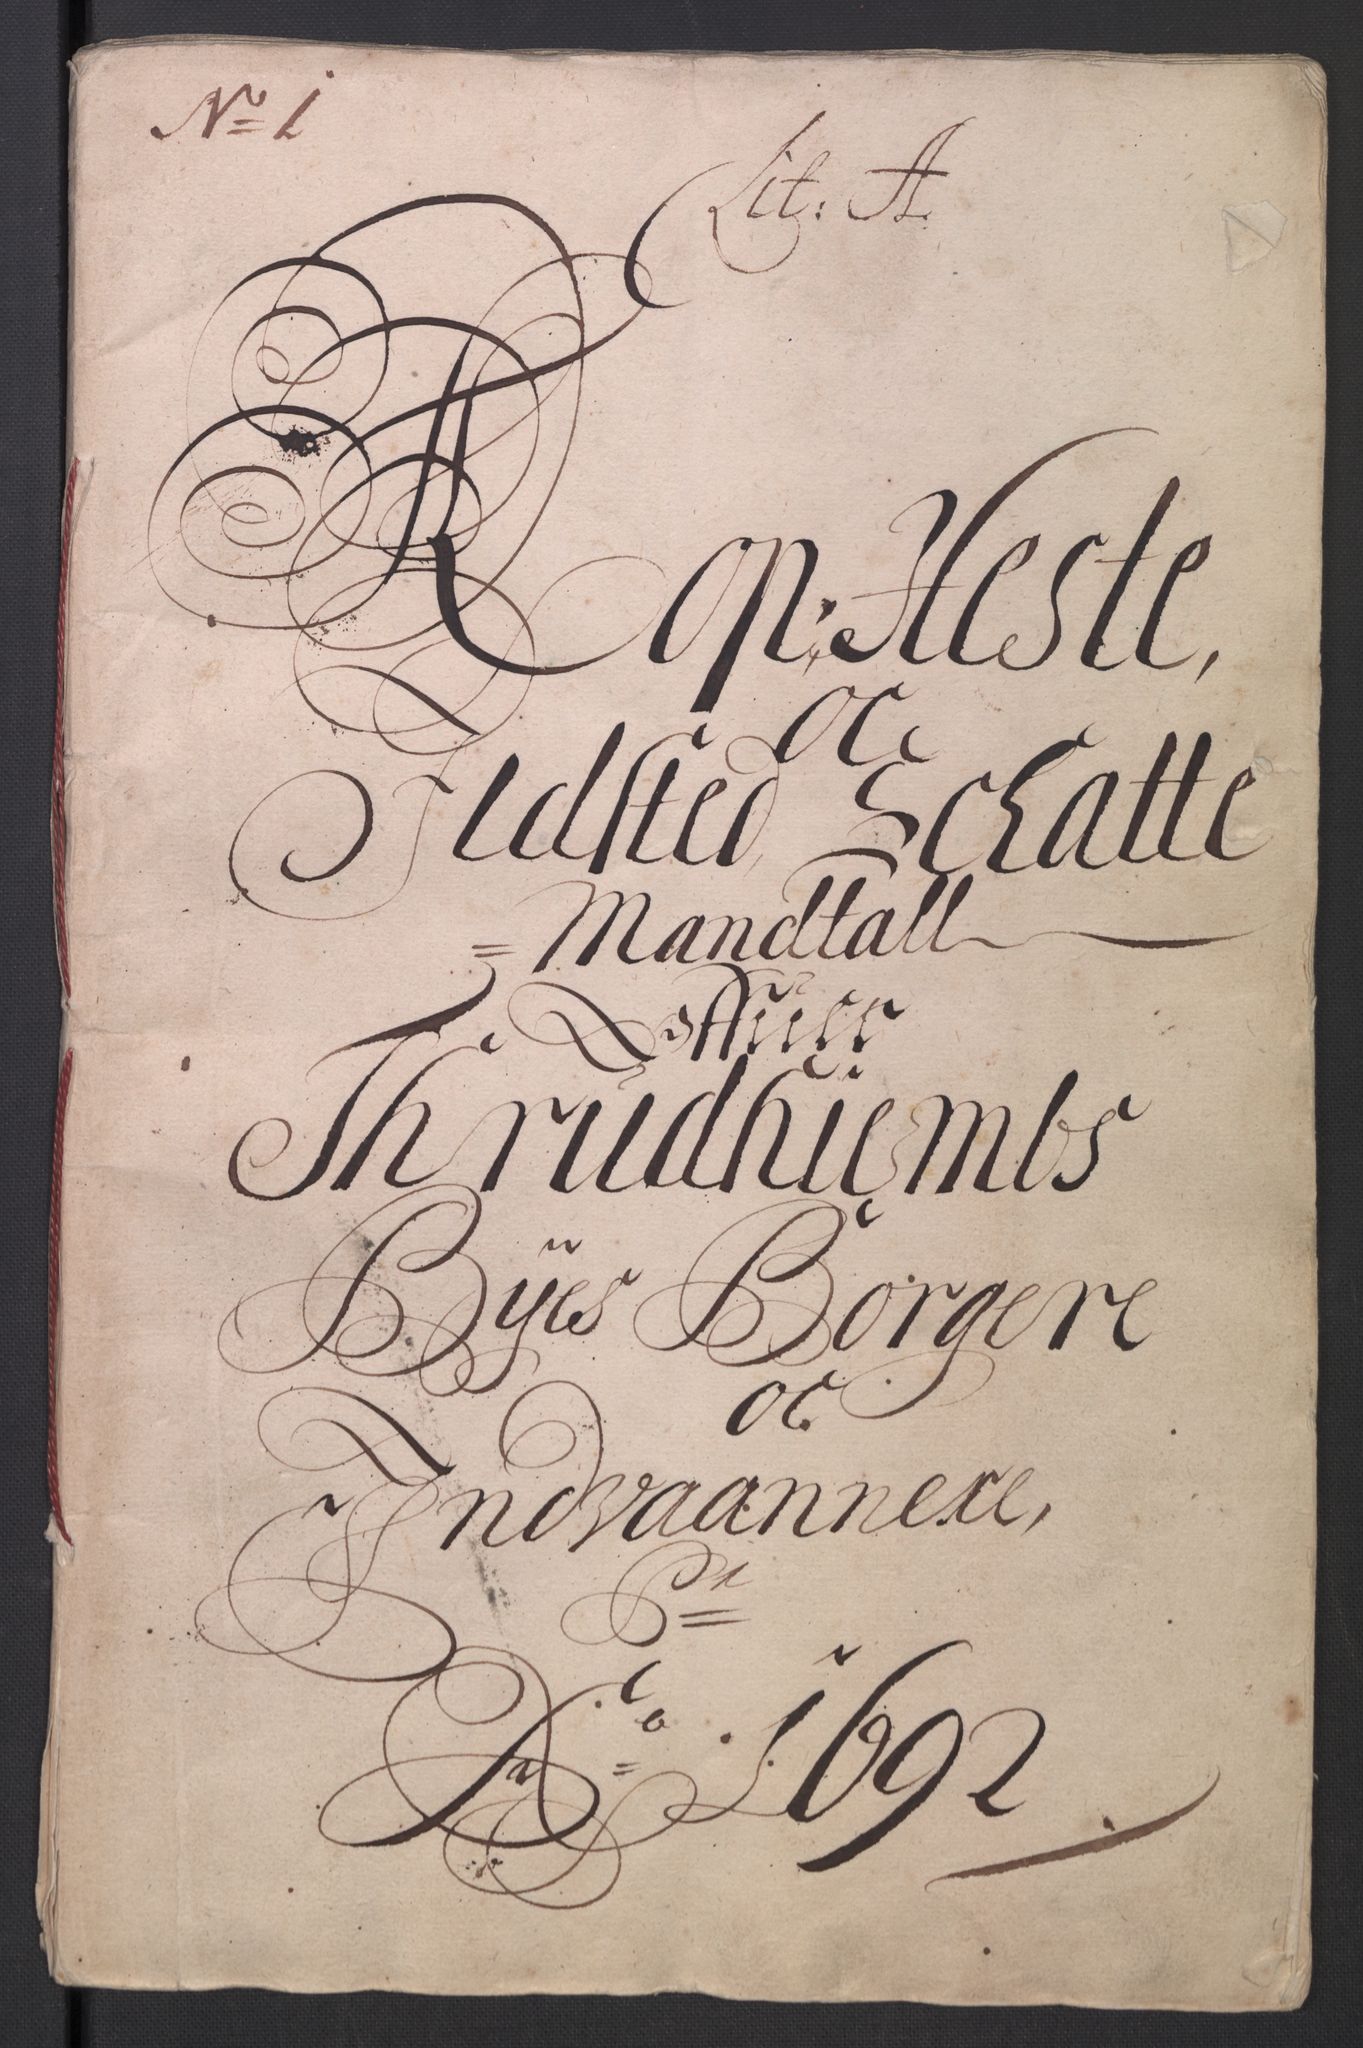 No 1
Lit: A.
Kop: Heste,
oc
Ildsted Schatte
= Mandtall
Offuer
Thrudhiembs
Bÿes Borgere
oc
Indvaannere,
Pro
Ao 1692